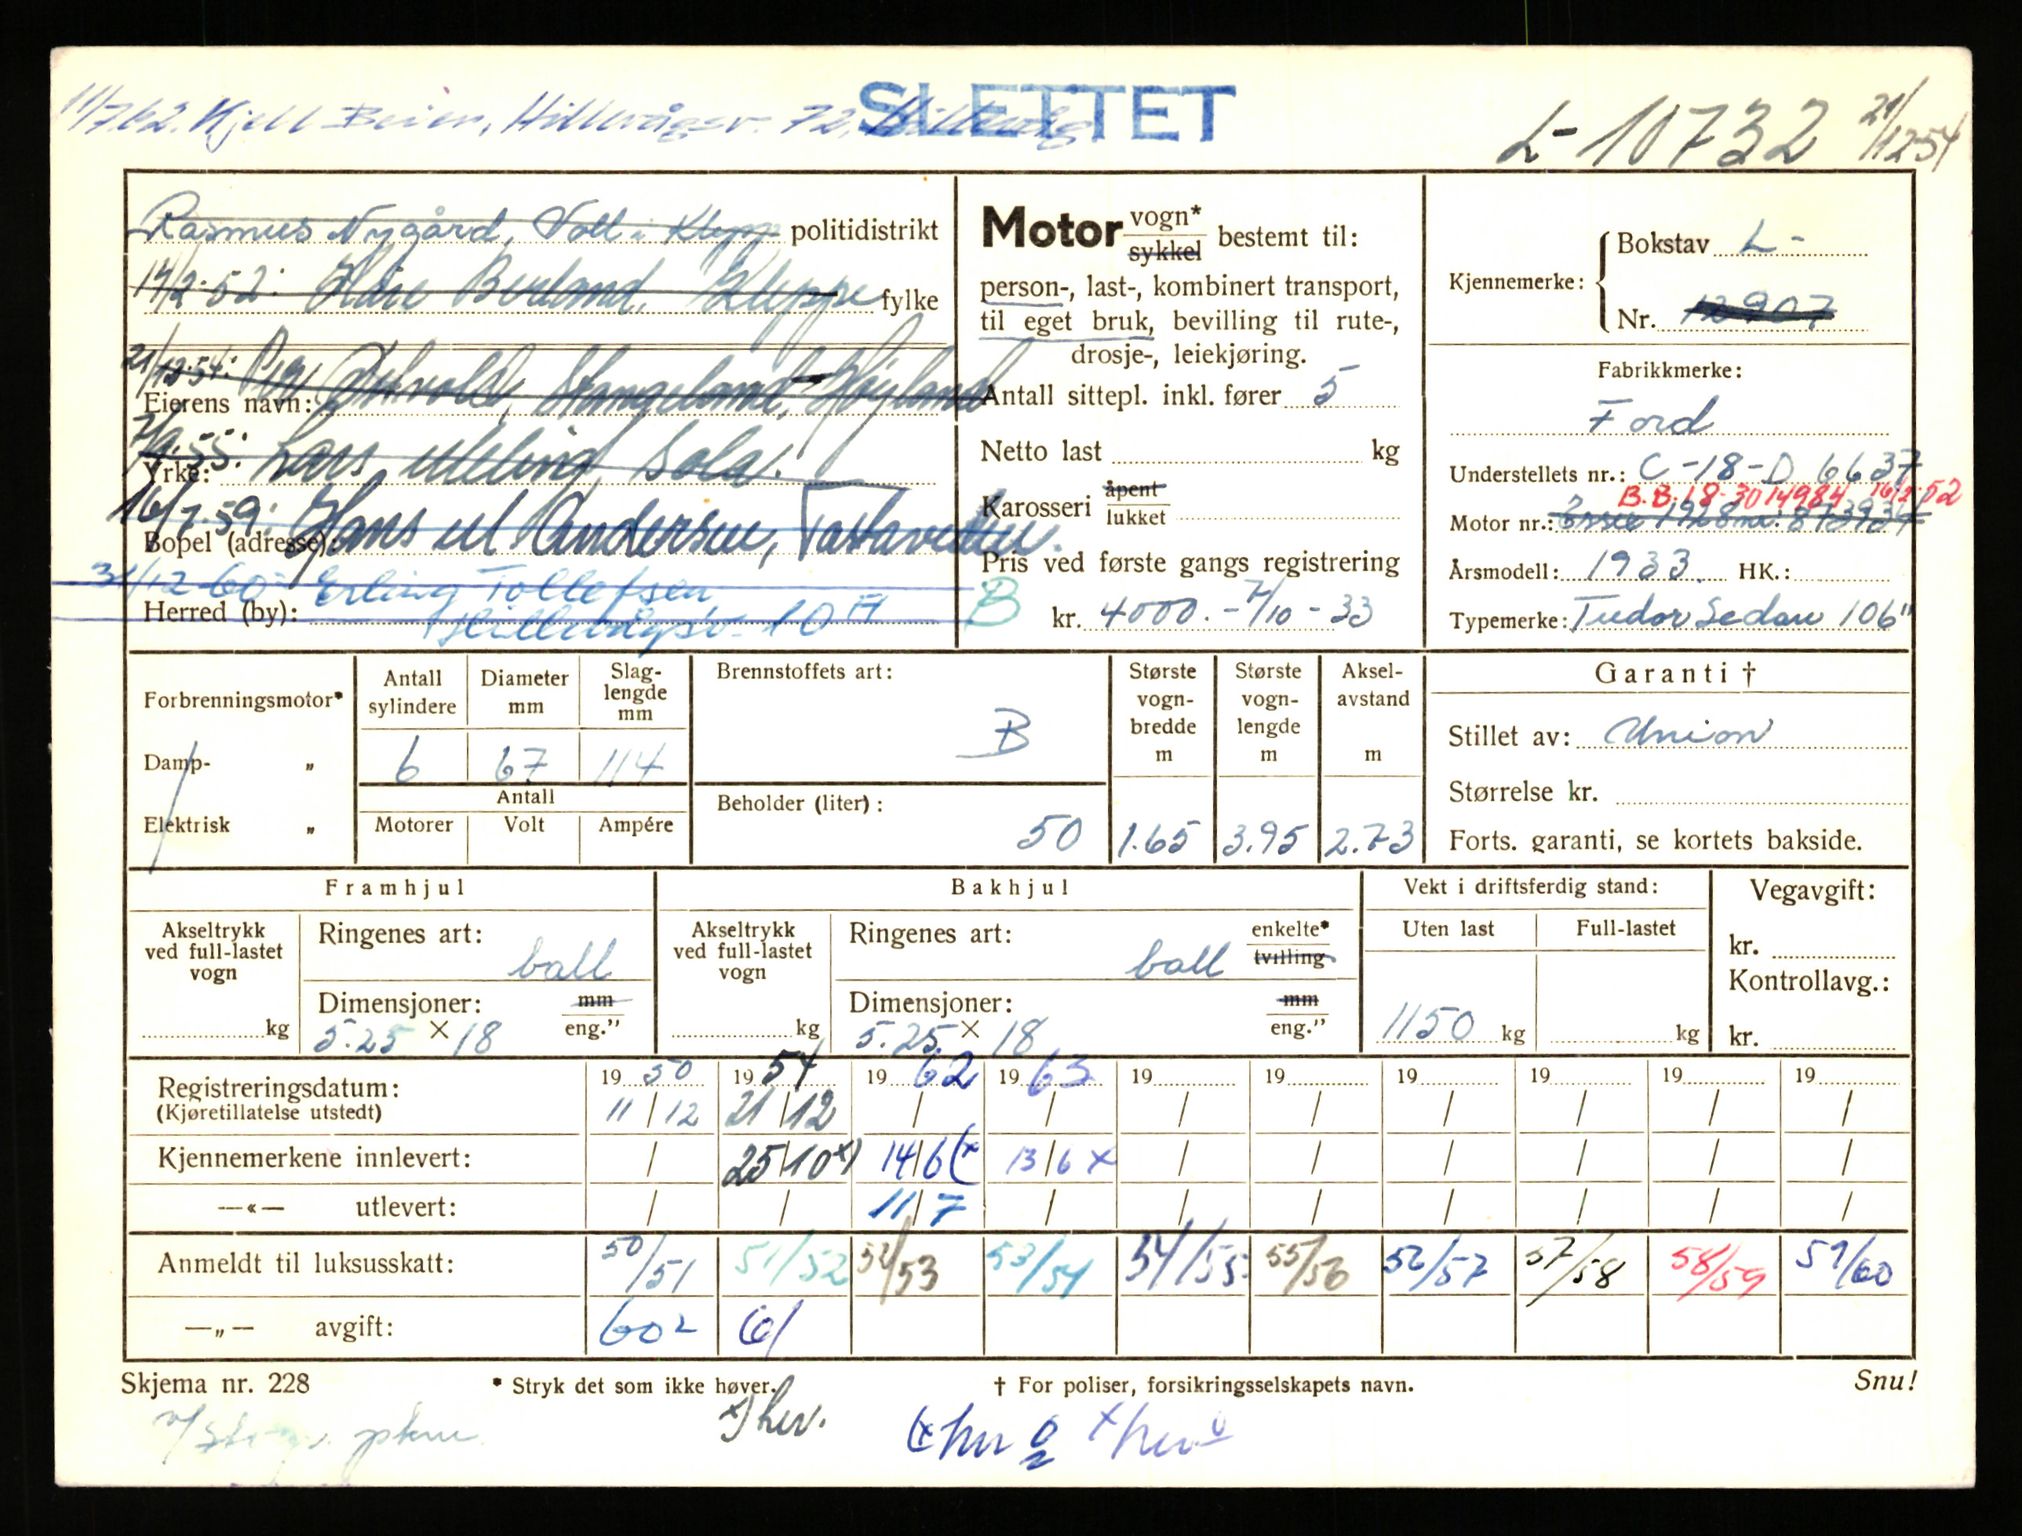 SLETTET
11/7.62. Kjell Beien, Hillevågsv. 72,
L-10732 21/12-54
Rasmus Nygård, Voll i Klepp politidistrikt
14/2-52: Klepp fylke
21/12-54: Stangeland, Høyland
Eierens navn:
7/9-55: Lars Sola.
Yrke:
16/7-59: Hans M Andersen, Tastaveden.
Bopel (adresse):
31/12-60: Erling Tollefsen
Herred (by): Hillevågsv. 10 A
Motor vogn* sykkel bestemt til:
person-, last-, kombinert transport,
til eget bruk, bevilling til rute-,
drosje-, leiekjøring.
Antall sittepl. inkl. fører 5
Netto last kg
Karosseri åpent lukket
Pris ved første gangs registrering
B kr. 4000.- 7/10-33
Kjennemerke: Bokstav L-
Nr. 12907
Fabrikkmerke:
Ford
Understellets nr.: C-18-D 6637
B.B.18-3014984 16/2-52
Motor nr.: Essex 1928 nr. 873934
Årsmodell: 1933. HK.:
Typemerke: Tudor Sedan 106"
Forbrenningsmotor*
Damp- „
Elektrisk „
Antall sylindere 6
Diameter mm 67
Slag-lengde mm 114
Antall
Motorer Volt Ampére
Brennstoffets art:
B
Beholder (liter):
50
Største vogn-bredde m 1.65
Største vogn-lengde m 3.95
Aksel-avstand m 2.73
Garanti †
Stillet av: Union
Størrelse kr.
Forts. garanti, se kortets bakside.
Framhjul
Akseltrykk ved full-lastet vogn kg
Ringenes art: ball
Dimensjoner: mm eng."
5.25 × 18
Bakhjul
Akseltrykk ved full-lastet vogn kg
Ringenes art: ball enkelte* tvilling
Dimensjoner: mm eng."
5.25 × 18
Vekt i driftsferdig stand:
Uten last Full-lastet
1150 kg kg
Vegavgift:
kr.
Kontrollavg.:
kr.
Registreringsdatum: 19 50 19 54 19 62 19 63 19 19 19 19 19 19
(Kjøretillatelse utstedt) 11/12 21/12 / / / / / / / /
Kjennemerkene innlevert: / 25/10 x) 14/6 (x 13/6 x / / / / / /
—«— utlevert: / / 11/7 / / / / / / /
Anmeldt til luksusskatt: 50/51 51/52 52/53 53/54 54/55 55/56 56/57 57/58 58/59 59/60
—„— avgift: 60² 61
Skjema nr. 228 * Stryk det som ikke høver. † For poliser, forsikringsselskapets navn. Snu!